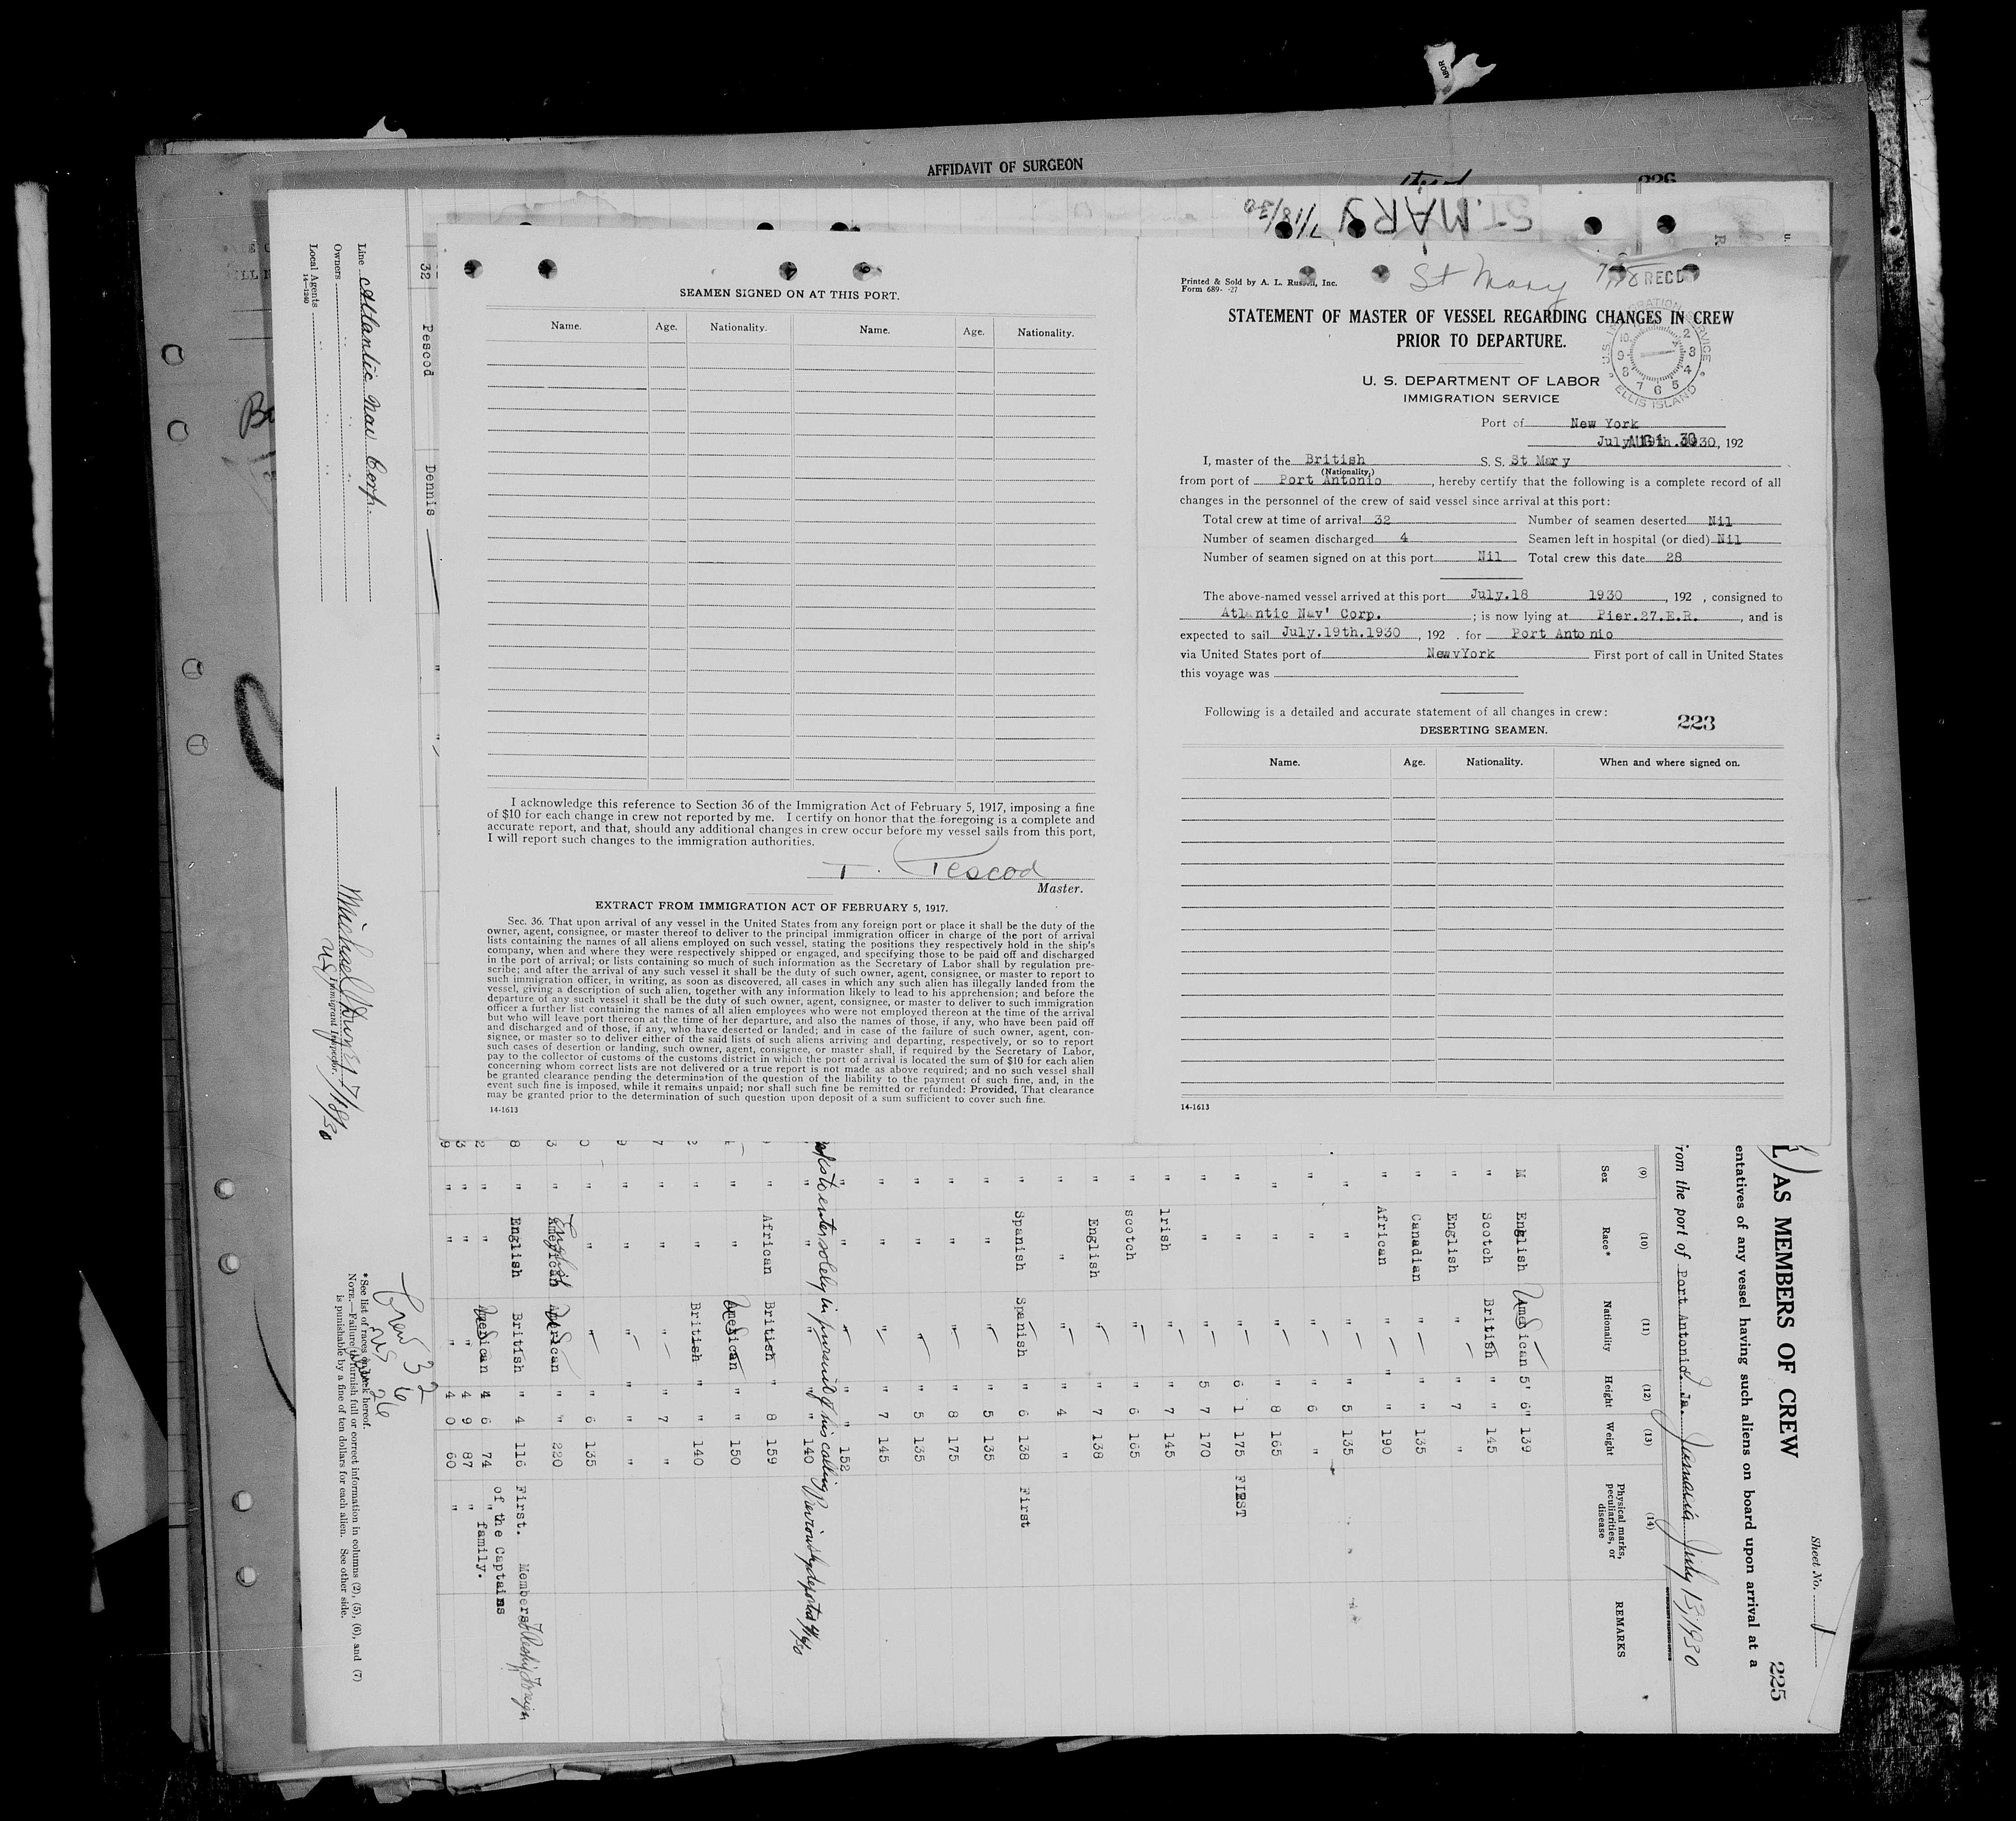 AFFIDAVIT OF SURGEON
226
ST. MARY
7/18/30
SEAMEN SIGNED ON AT THIS PORT.
Name. Age. Nationality. Name. Age. Nationality.
I acknowledge this reference to Section 36 of the Immigration Act of February 5, 1917, imposing a fine
of $10 for each change in crew not reported by me. I certify on honor that the foregoing is a complete and
accurate report, and that, should any additional changes in crew occur before my vessel sails from this port,
I will report such changes to the immigration authorities.
T. Pescod
Master.
EXTRACT FROM IMMIGRATION ACT OF FEBRUARY 5, 1917.
Sec. 36. That upon arrival of any vessel in the United States from any foreign port or place it shall be the duty of the
owner, agent, consignee, or master thereof to deliver to the principal immigration officer in charge of the port of arrival
lists containing the names of all aliens employed on such vessel, stating the positions they respectively hold in the ship's
company, when and where they were respectively shipped or engaged, and specifying those to be paid off and discharged
in the port of arrival; or lists containing so much of such information as the Secretary of Labor shall by regulation pre-
scribe; and after the arrival of any such vessel it shall be the duty of such owner, agent, consignee, or master to report to
such immigration officer, in writing, as soon as discovered, all cases in which any such alien has illegally landed from the
vessel, giving a description of such alien, together with any information likely to lead to his apprehension; and before the
departure of any such vessel it shall be the duty of such owner, agent, consignee, or master to deliver to such immigration
officer a further list containing the names of all alien employees who were not employed thereon at the time of the arrival
but who will leave port thereon at the time of her departure, and also the names of those, if any, who have been paid off
and discharged and of those, if any, who have deserted or landed; and in case of the failure of such owner, agent, con-
signee, or master so to deliver either of the said lists of such aliens arriving and departing, respectively, or so to report
such cases of desertion or landing, such owner, agent, consignee, or master shall, if required by the Secretary of Labor,
pay to the collector of customs of the customs district in which the port of arrival is located the sum of $10 for each alien
concerning whom correct lists are not delivered or a true report is not made as above required; and no such vessel shall
be granted clearance pending the determination of the question of the liability to the payment of such fine, and, in the
event such fine is imposed, while it remains unpaid; nor shall such fine be remitted or refunded: Provided, That clearance
may be granted prior to the determination of such question upon deposit of a sum sufficient to cover such fine.
14-1613
Printed & Sold by A. L. Russell, Inc.
Form 689- -27
St Mary 7/18 RECD
STATEMENT OF MASTER OF VESSEL REGARDING CHANGES IN CREW
PRIOR TO DEPARTURE.
U.S. IMMIGRATION SERVICE ELLIS ISLAND
U. S. DEPARTMENT OF LABOR
IMMIGRATION SERVICE
Port of New York
July 19th.1930, 192
I, master of the British S. S. St Mary
(Nationality)
from port of Port Antonio, hereby certify that the following is a complete record of all
changes in the personnel of the crew of said vessel since arrival at this port:
Total crew at time of arrival 32 Number of seamen deserted Nil
Number of seamen discharged 4 Seamen left in hospital (or died) Nil
Number of seamen signed on at this port Nil Total crew this date 28
The above-named vessel arrived at this port July.18 1930, 192 , consigned to
Atlantic Nav' Corp.; is now lying at Pier.27.E.R., and is
expected to sail July.19th.1930, 192 . for Port Antonio
via United States port of NewvYork First port of call in United States
this voyage was
Following is a detailed and accurate statement of all changes in crew:
223
DESERTING SEAMEN.
Name. Age. Nationality. When and where signed on.
14-1613
Sheet No. 1
225
L) AS MEMBERS OF CREW
entatives of any vessel having such aliens on board upon arrival at a
rom the port of Port Antonio Ja. Jamaica July 13, 1930
(9) (10) (11) (12) (13) (14)
Sex Race* Nationality Height Weight Physical marks, peculiarities, or disease REMARKS
M English American 5' 6" 139
" Scotch British " " 145
" English " " 7 "
" Canadian " " " 135
" African " " " 190
" " " " 5 135
" " " 6 "
" " " " 8 165
" " " 6 1 175 FIRST
" " " 5 7 170
" Irish " " 7 145
" scotch " " 6 165
" English " " 7 138
" " " " 4 "
" Spanish Spanish " 6 138 First
" " " " 5 135
" " " " 8 175
" " " " 5 135
" " " " 7 145
" " " " " 152
to enter solely in pursuit of his calling
" " " " " 140 Previously deported
" African British " 8 159
" " American " " 150
" " British " " 140
" " " " 7 "
" " " " " "
" " " " 6 135
" English American " " 220
" English British " 4 116 First. Members
of the Captains
" " American 4 6 74 " family.
" " " 4 9 87 "
" " " 4 0 60 "
32 Pescod Dennis
Crew 32
*See list of races on back hereof.
NOTE.—Failure to furnish full or correct information in columns (2), (5), (6), and (7)
is punishable by a fine of ten dollars for each alien. See other side.
Line Atlantic Nav Corp.
Owners
Local Agents
14—1240
Immigrant Inspector.
7/18/30